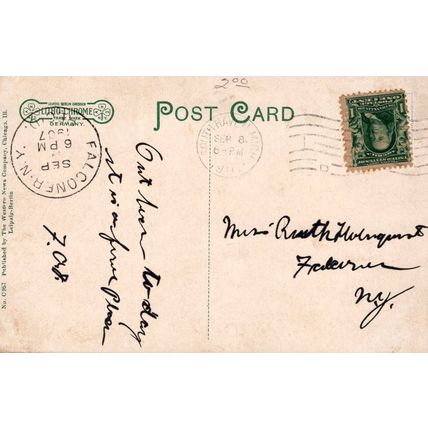 200
LITHO-CHROME
GERMANY.
POST CARD
FALCONER N.Y.
SEP
6 PM
1907
SEP 8
6-PM
Out here to day
it is a fine place
Miss Ruth Holmquist
Falconer
N.Y.
No. C957 Published by The Western News Company, Chicago, Ill.
Leipzig-Berlin